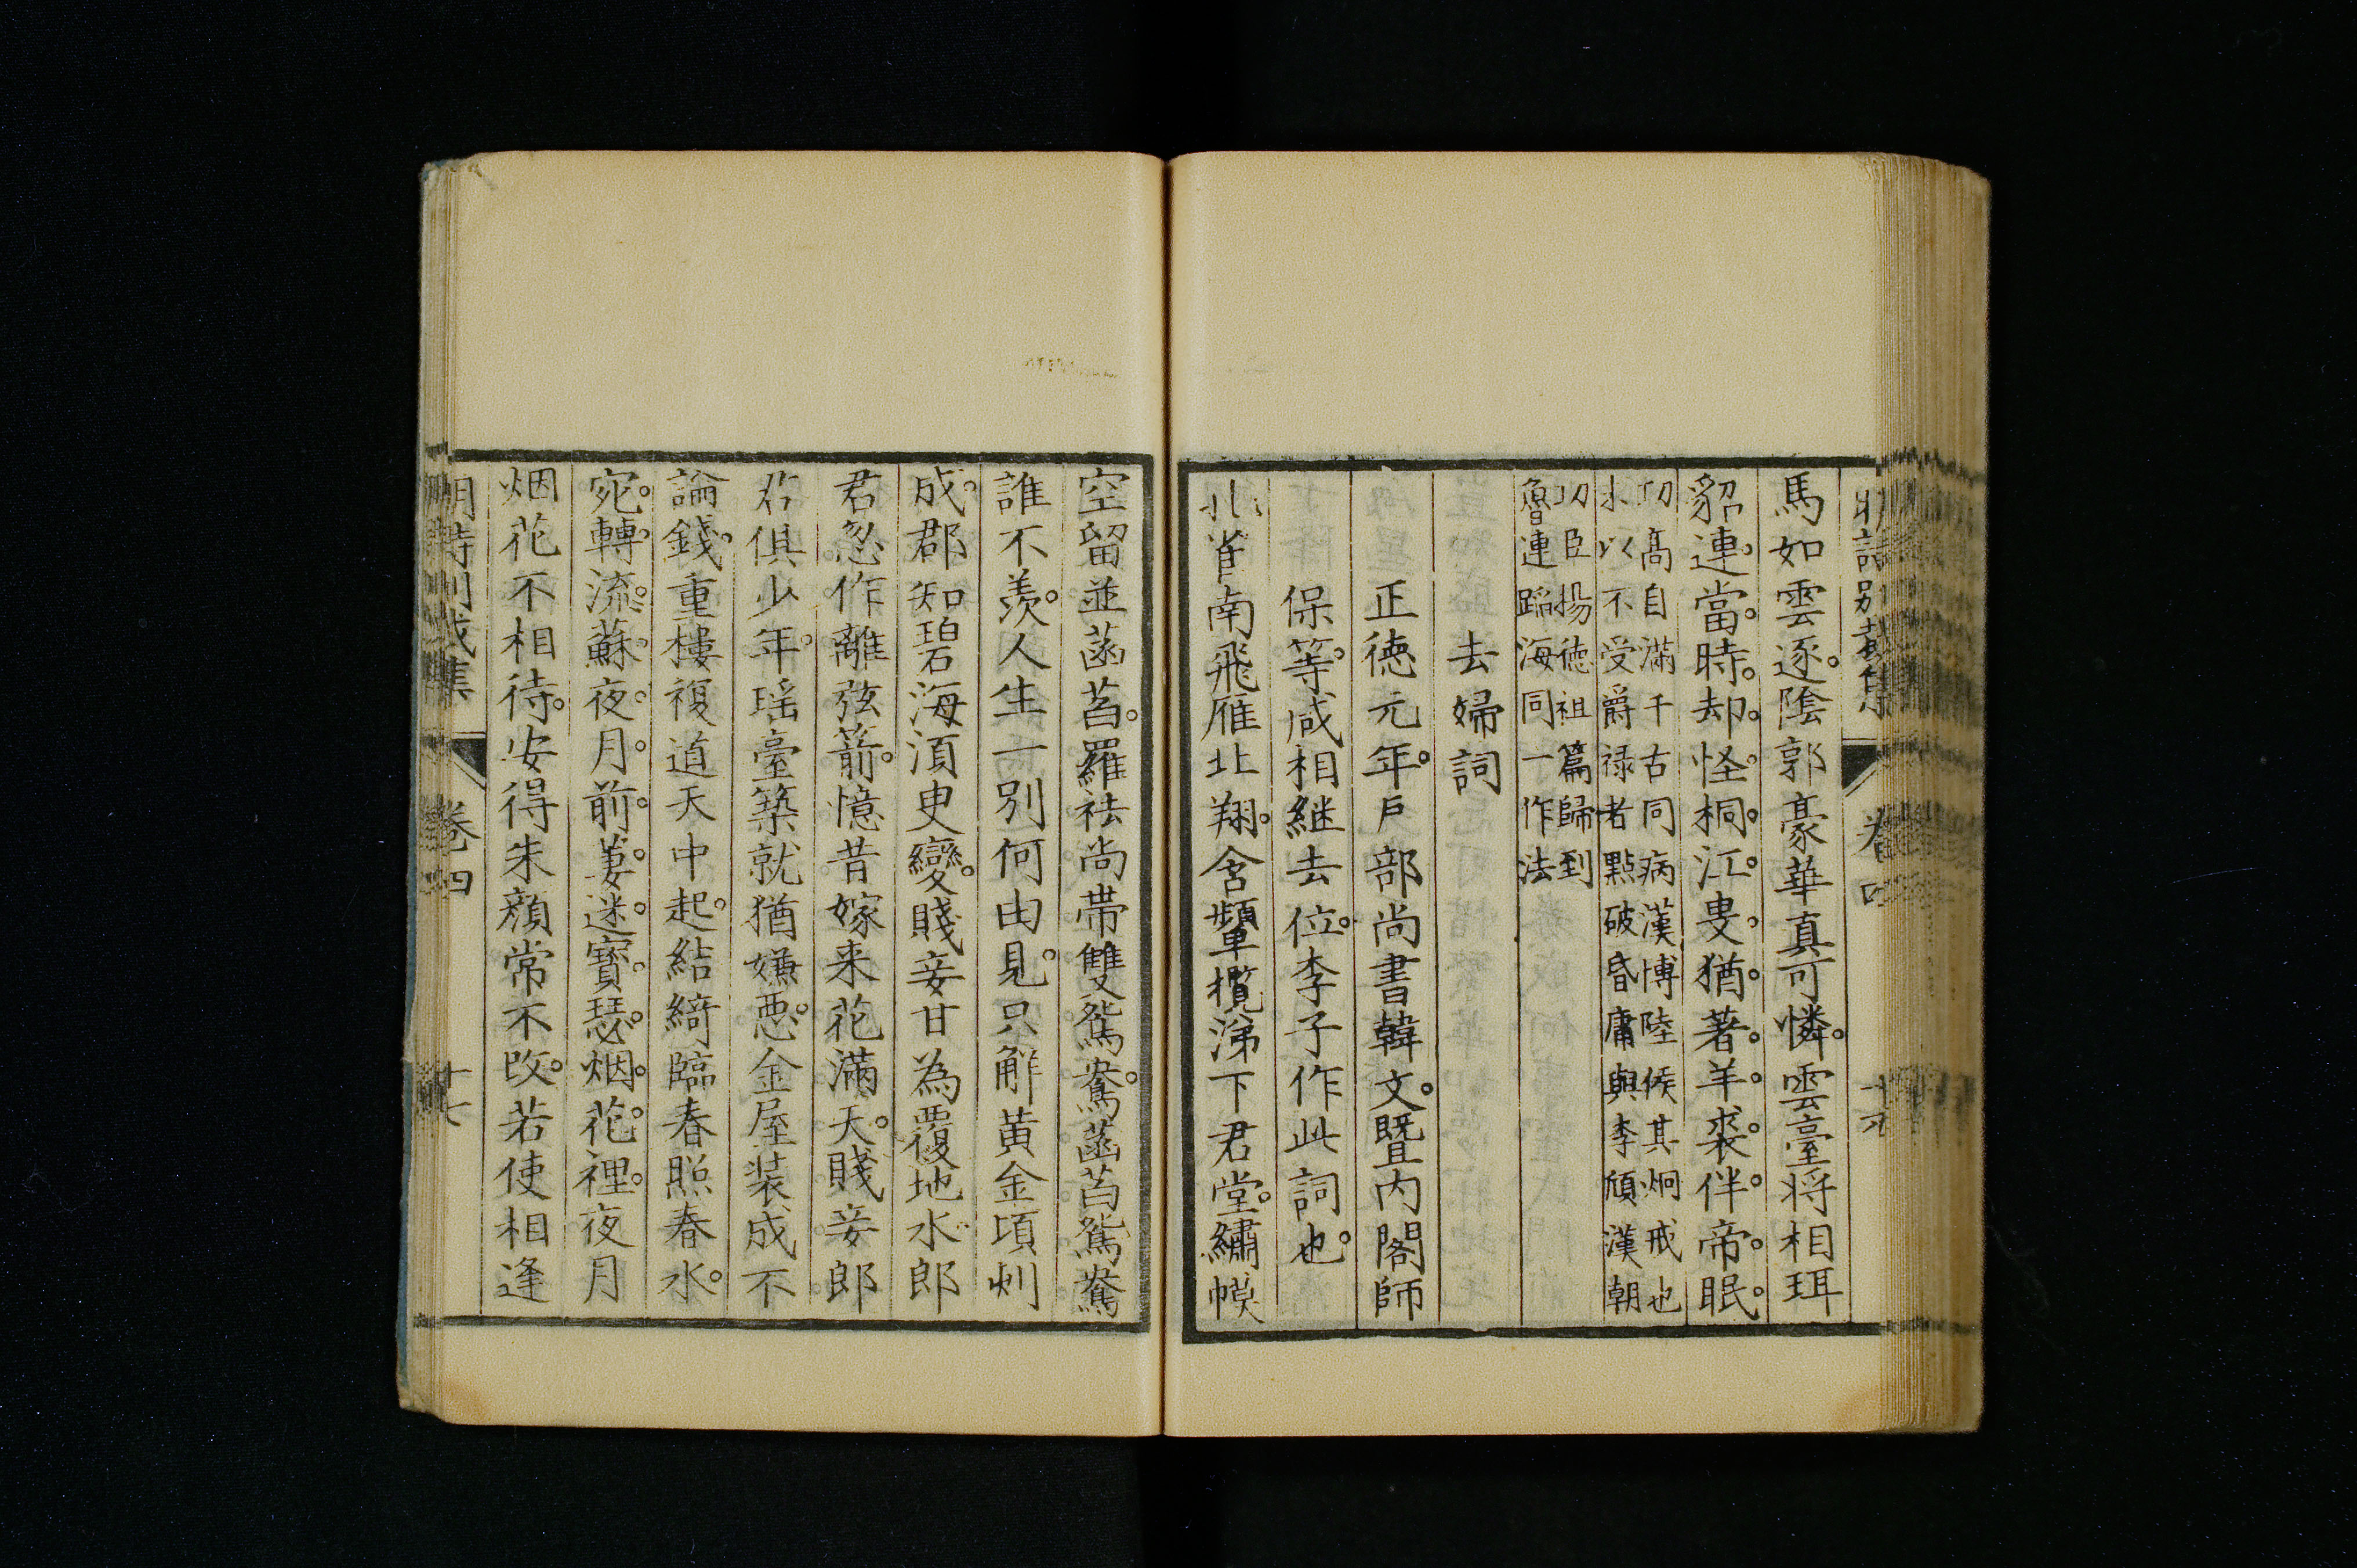 明詩別裁集 卷四
馬如雲逐陰郭豪華真可憐雲臺将相珥
貂連當時却怪桐江叟猶著羊裘伴帝眠
功高自滿千古同病漢博陸侯其炯戒也
末以不受爵禄者點破昏庸與李頎漢朝
功臣揚徳祖篇歸到
魯連蹈海同一作法
去婦詞
正徳元年戶部尚書韓文暨内閣師
保等咸相継去位李子作此詞也
孔雀南飛雁北翔含顰攬涕下君堂繡幙
空留並菡萏羅袪尚帯雙鴛鴦菡萏鴛鴦
誰不羨人生一别何由見只觧黄金頃刻
成郡知碧海湏臾變賤妾甘為覆地水郎
君忽作離弦箭憶昔嫁来花滿天賤妾郎
君俱少年瑶臺築就猶嫌惡金屋装成不
論錢重樓複道天中起結綺臨春照春水
宛轉流蘇夜月前萋迷寳瑟烟花裡夜月
烟花不相待安得朱顔常不改若使相逢
明詩別裁集 卷四 十七